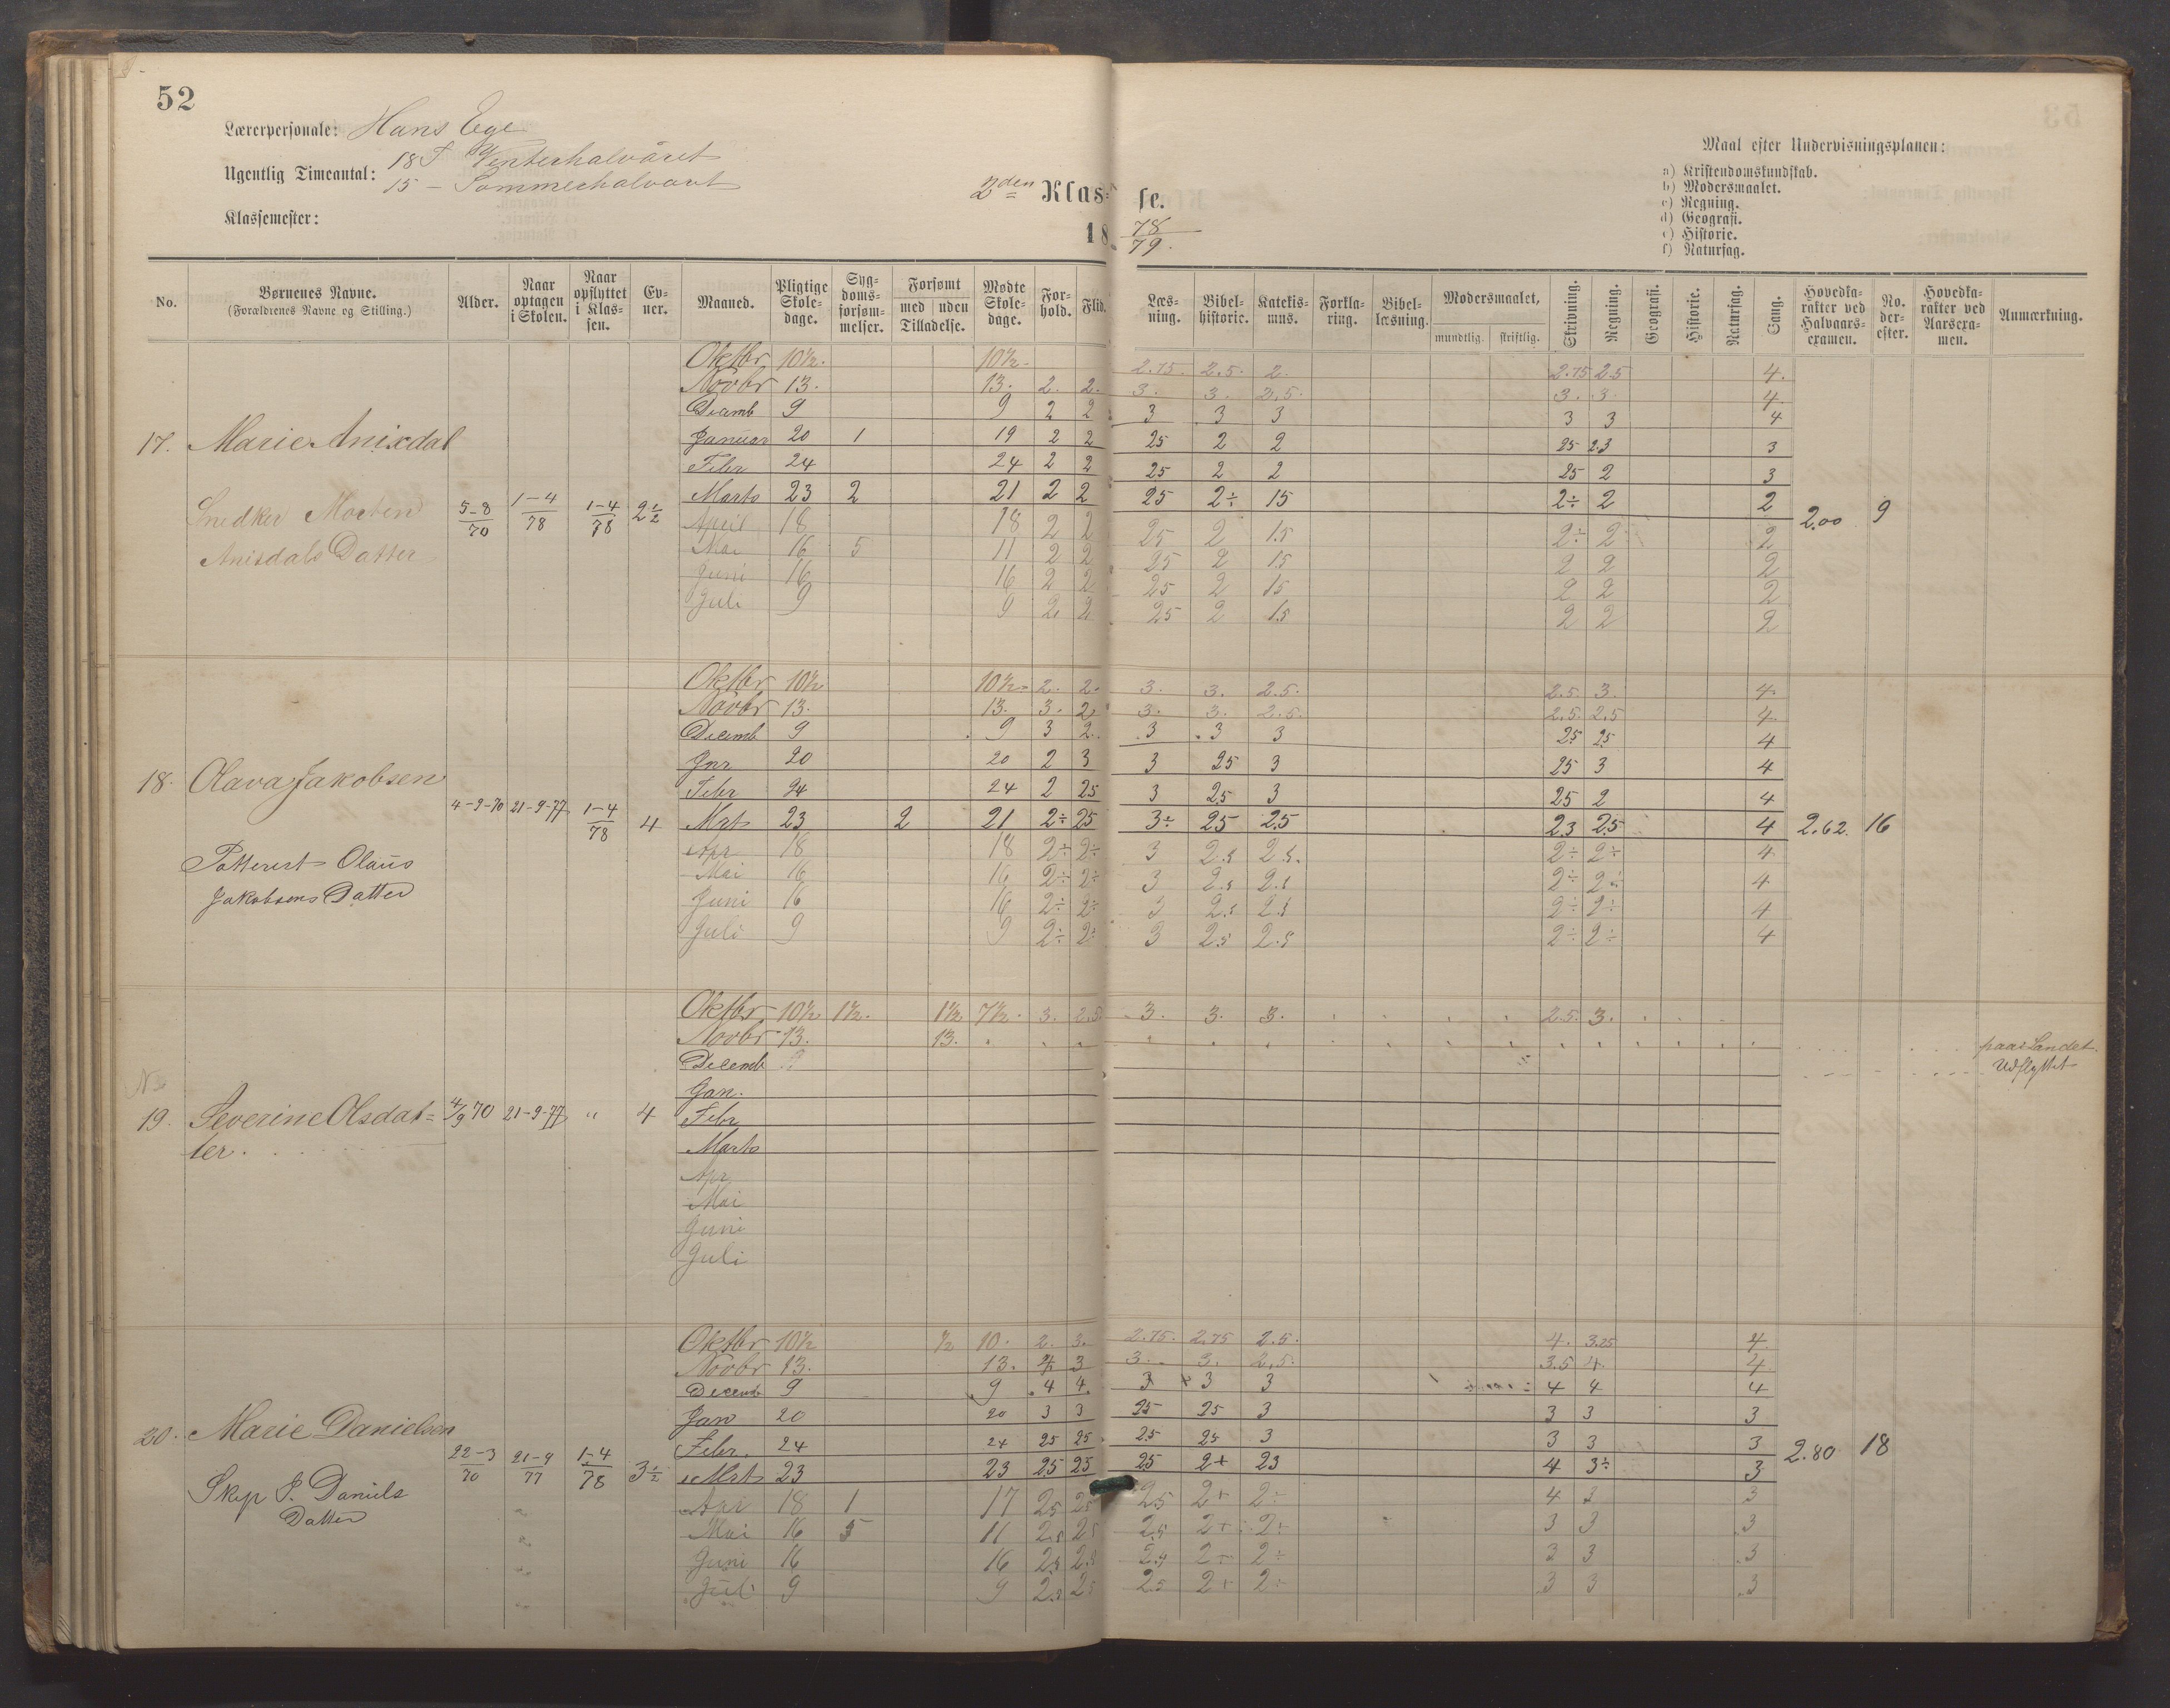 52
Lærerpersonale: Hans Ege
Ugentlig Timeantal: 18 T Venterhalvåret
15 – Sommerhalvaret
Klassemester:
2den Klasse.
18 78/79.
Maal efter Undervisningsplanen:
a) Kristendomskundskab.
b) Modersmaalet.
c) Regning.
d) Geografi.
e) Historie.
f) Naturfag.
No. | Børnenes Navne. (Forældrenes Navne og Stilling.) | Alder. | Naar optagen i Skolen. | Naar opflyttet i Klassen. | Evner. | Maaned. | Pligtige Skoledage. | Sygdomsforsømmelser. | Forsømt med / uden Tilladelse. | Mødte Skoledage. | Forhold. | Flid. | Læsning. | Bibelhistorie. | Katekismus. | Forklaring. | Bibellæsning. | Modersmaalet, mundtlig. skriftlig. | Skrivning. | Regning. | Geografi. | Historie. | Naturfag. | Sang. | Hovedkarakter ved Halvaarsexamen. | No. derefter. | Hovedkarakter ved Aarsexamen. | Anmærkning.
17. Marie Anisdal
Snedker Morten
Anisdals Datter
5-8/70 | 1-4/78 | 1-4/78 | 2½
Oktbr 10½. 10½- 2.75. 2.5. 2. 2.75 2.5 4.
Novbr 13. 13. 2. 2. 3. 3. 2.5. 3. 3. 4.
Decemb 9 9 2 2 3 3 3 3 3 4
Januar 20 1 19 2 2 25 2 2 25 23 3
Febr 24 24 2 2 25 2 2 25 2 3
Marts 23 2 21 2 2 25 2÷ 15 2÷ 2 2
2.00 9
April 18 18 2 2 25 2 15 2÷ 2 2
Mai 16 5 11 2 2 25 2 15 2 2 2
Juni 16 16 2 2 25 2 15 2 2 2
Juli 9 9 2 2 25 2 15 2 2 2
18. Olava Jakobsen
Olaus
Jakobsens Datter
4-9-70 | 21-9-77 | 1-4/78 | 4
Oktbr 10½ 10½- 2. 2. 3. 3. 2.5. 2.5. 3. 4.
Novbr 13. 13. 3. 2. 3. 3. 2.5. 2.5. 2.5 4.
Decemb 9 9 3 2. 3 3 3 25 25 4
Jnr 20 20 2 3 3 25 3 25 3 4
Febr 24 24 2 25 3 25 3 25 2 4
Mrt 23 2 21 2÷ 25 3÷ 25 25 23 25 4 2.62. 16
Apr 18 18 2÷ 2÷ 3 2.5 2.5. 2÷ 2÷ 4
Mai 16 16 2÷ 2÷ 3 2.5 2.5 2÷ 2÷ 4
Juni 16 16 2÷ 2÷ 3 2.5 2.5 2÷ 2÷ 4
Juli 9 9 2÷ 2÷ 3 2.5 2.5 2÷ 2÷ 4
19. Severine Olsdat=
ter.
4/9 70 | 21-9-77 | " | 4
Oktbr 10½ 1½. 1½ 7½. 3. 2.5. 3. 3. 3. 2.5. 3.
Novbr 13. 13.
paa Landet.
Udflyttet
Decemb
Jan.
Febr
Marts
Apr
Mai
Juni
Juli
20. Marie Danielsen
Skip Daniels
Datter
22-3/70 | 21-9/77 | 1-4/78 | 3½
Oktbr 10½ ½ 10. 2. 3. 2.75. 2.75 2.5. 4. 3.25 4.
Novbr 13. 13. 4 3 3. 3. 2.5. 3.5 4. 4
Decemb 9 9 4 4. 3 3 3 4 4 4
Jan 20 20 3 3 25 25 3 3 3 3
Febr. 24 24 25 25 25 25 3 3 3 3
Mrt 23 23 25 25 25 2+ 23 4 3÷ 3
2.80 18
Apr 18 1 17 25 25 25 2+ 2÷ 4 3 3
Mai 16 5 11 2.5 25 2.5 2+ 2÷ 3 3 3
Juni 16 16 2.5 2.5 2.5 2+ 2÷ 3 3 3
Juli 9 9 2.5 25 25 2+ 2÷ 3 3 3